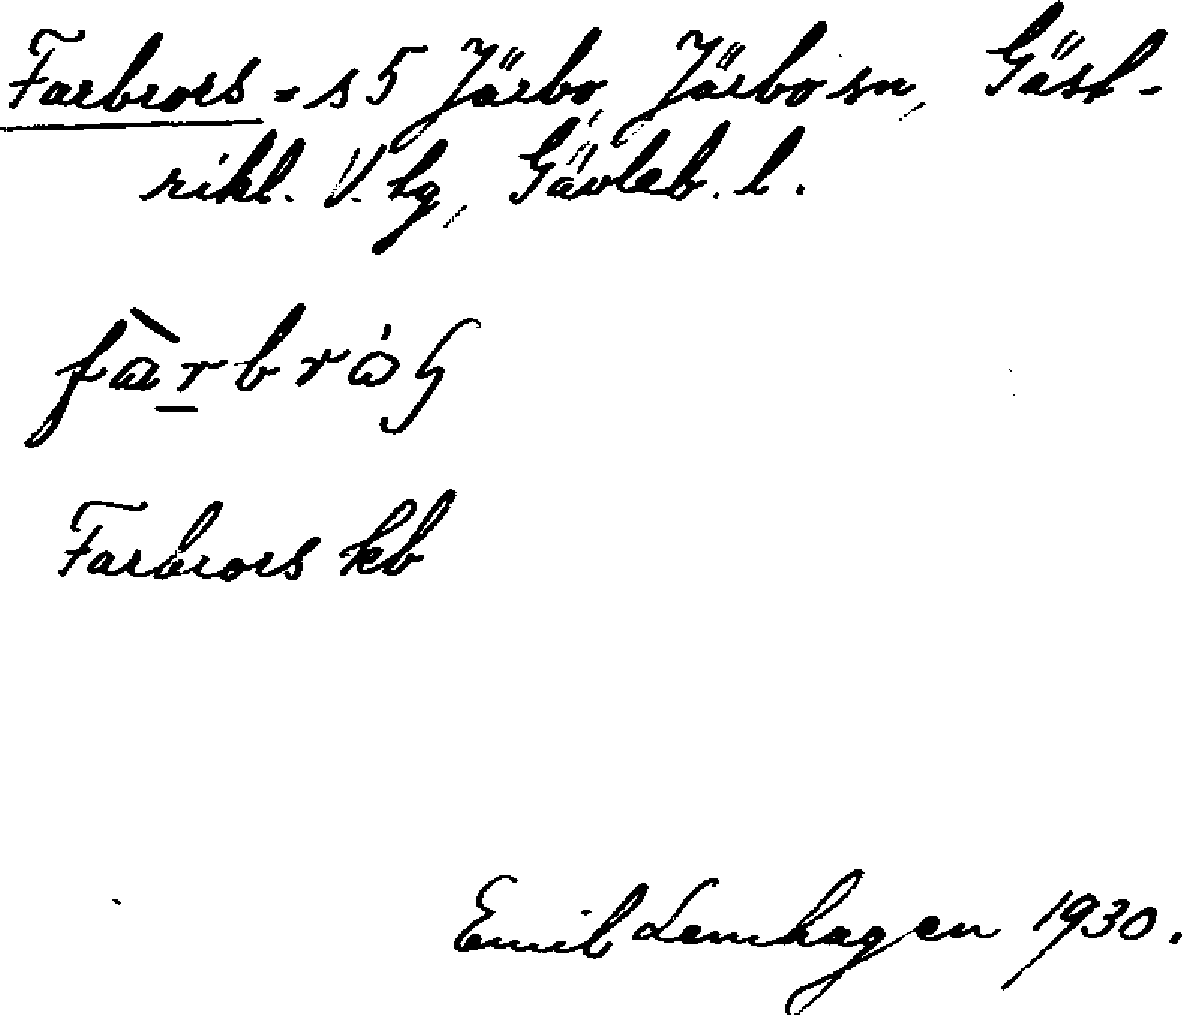 Farbrors = s 5 Järbo, Järbo sn, Gäst-
rikl. V. hg, Gävleb. l.
Farbrors kb
Emil Lemhagen 1930.